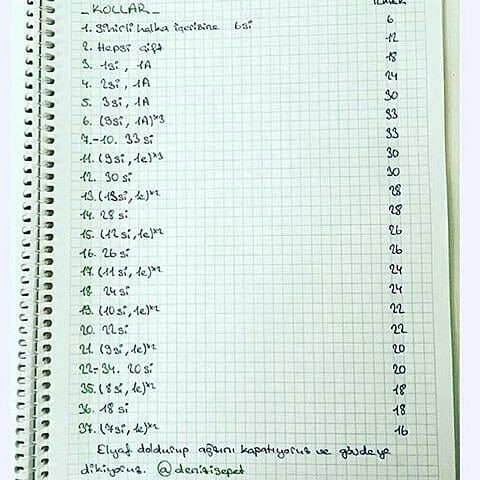 _KOLLAR_
1. Sihirli halka içerisine 6si 6
2. Hepsi çift 12
3. 1si, 1A 18
4. 2si, 1A 24
5. 3si, 1A 30
6. (9si, 1A)*3 33
7.-10. 33 si 33
11. (9si, 1e)*3 30
12. 30 si 30
13. (13si, 1e)*2 28
14. 28 si 28
15. (12si, 1e)*2 26
16. 26 si 26
17. (11 si, 1e)*2 24
18. 24 si 24
19. (10 si, 1e)*2 22
20. 22si 22
21. (9si, 1e)*2 20
22-34. 20 si 20
35. (8si, 1e)*2 18
36. 18 si 18
37. (7si, 1e)*2 16
Elyaf doldurup ağzını kapatıyoruz ve gövdeye
dikiyoruz. @denizisepet